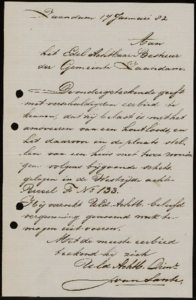 Zaandam 17 Januari 82
Aan
het Edel Achtbaar Bestuur
der Gemeente Zaandam.
De ondergeteekende geeft
met verschuldigden eerbied te
kennen, dat hij belast is met het
amoveeren van een houtloods en
het daarvoor in de plaats stel-
len van een huis met twee wonin-
gen volgens bijgaande schets,
gelegen in de Westzijde achter
Perceel No 133.
Hij verzoekt Uw Achtb. beleefd
vergunning genoemd werk te
mogen uitvoeren.
Met de meeste eerbied
teekend hij zich
UEd. Achtb. Dienr.